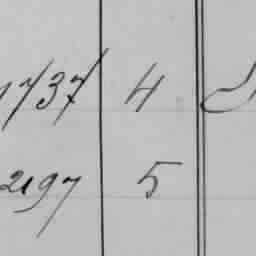 1737 4
2197 5